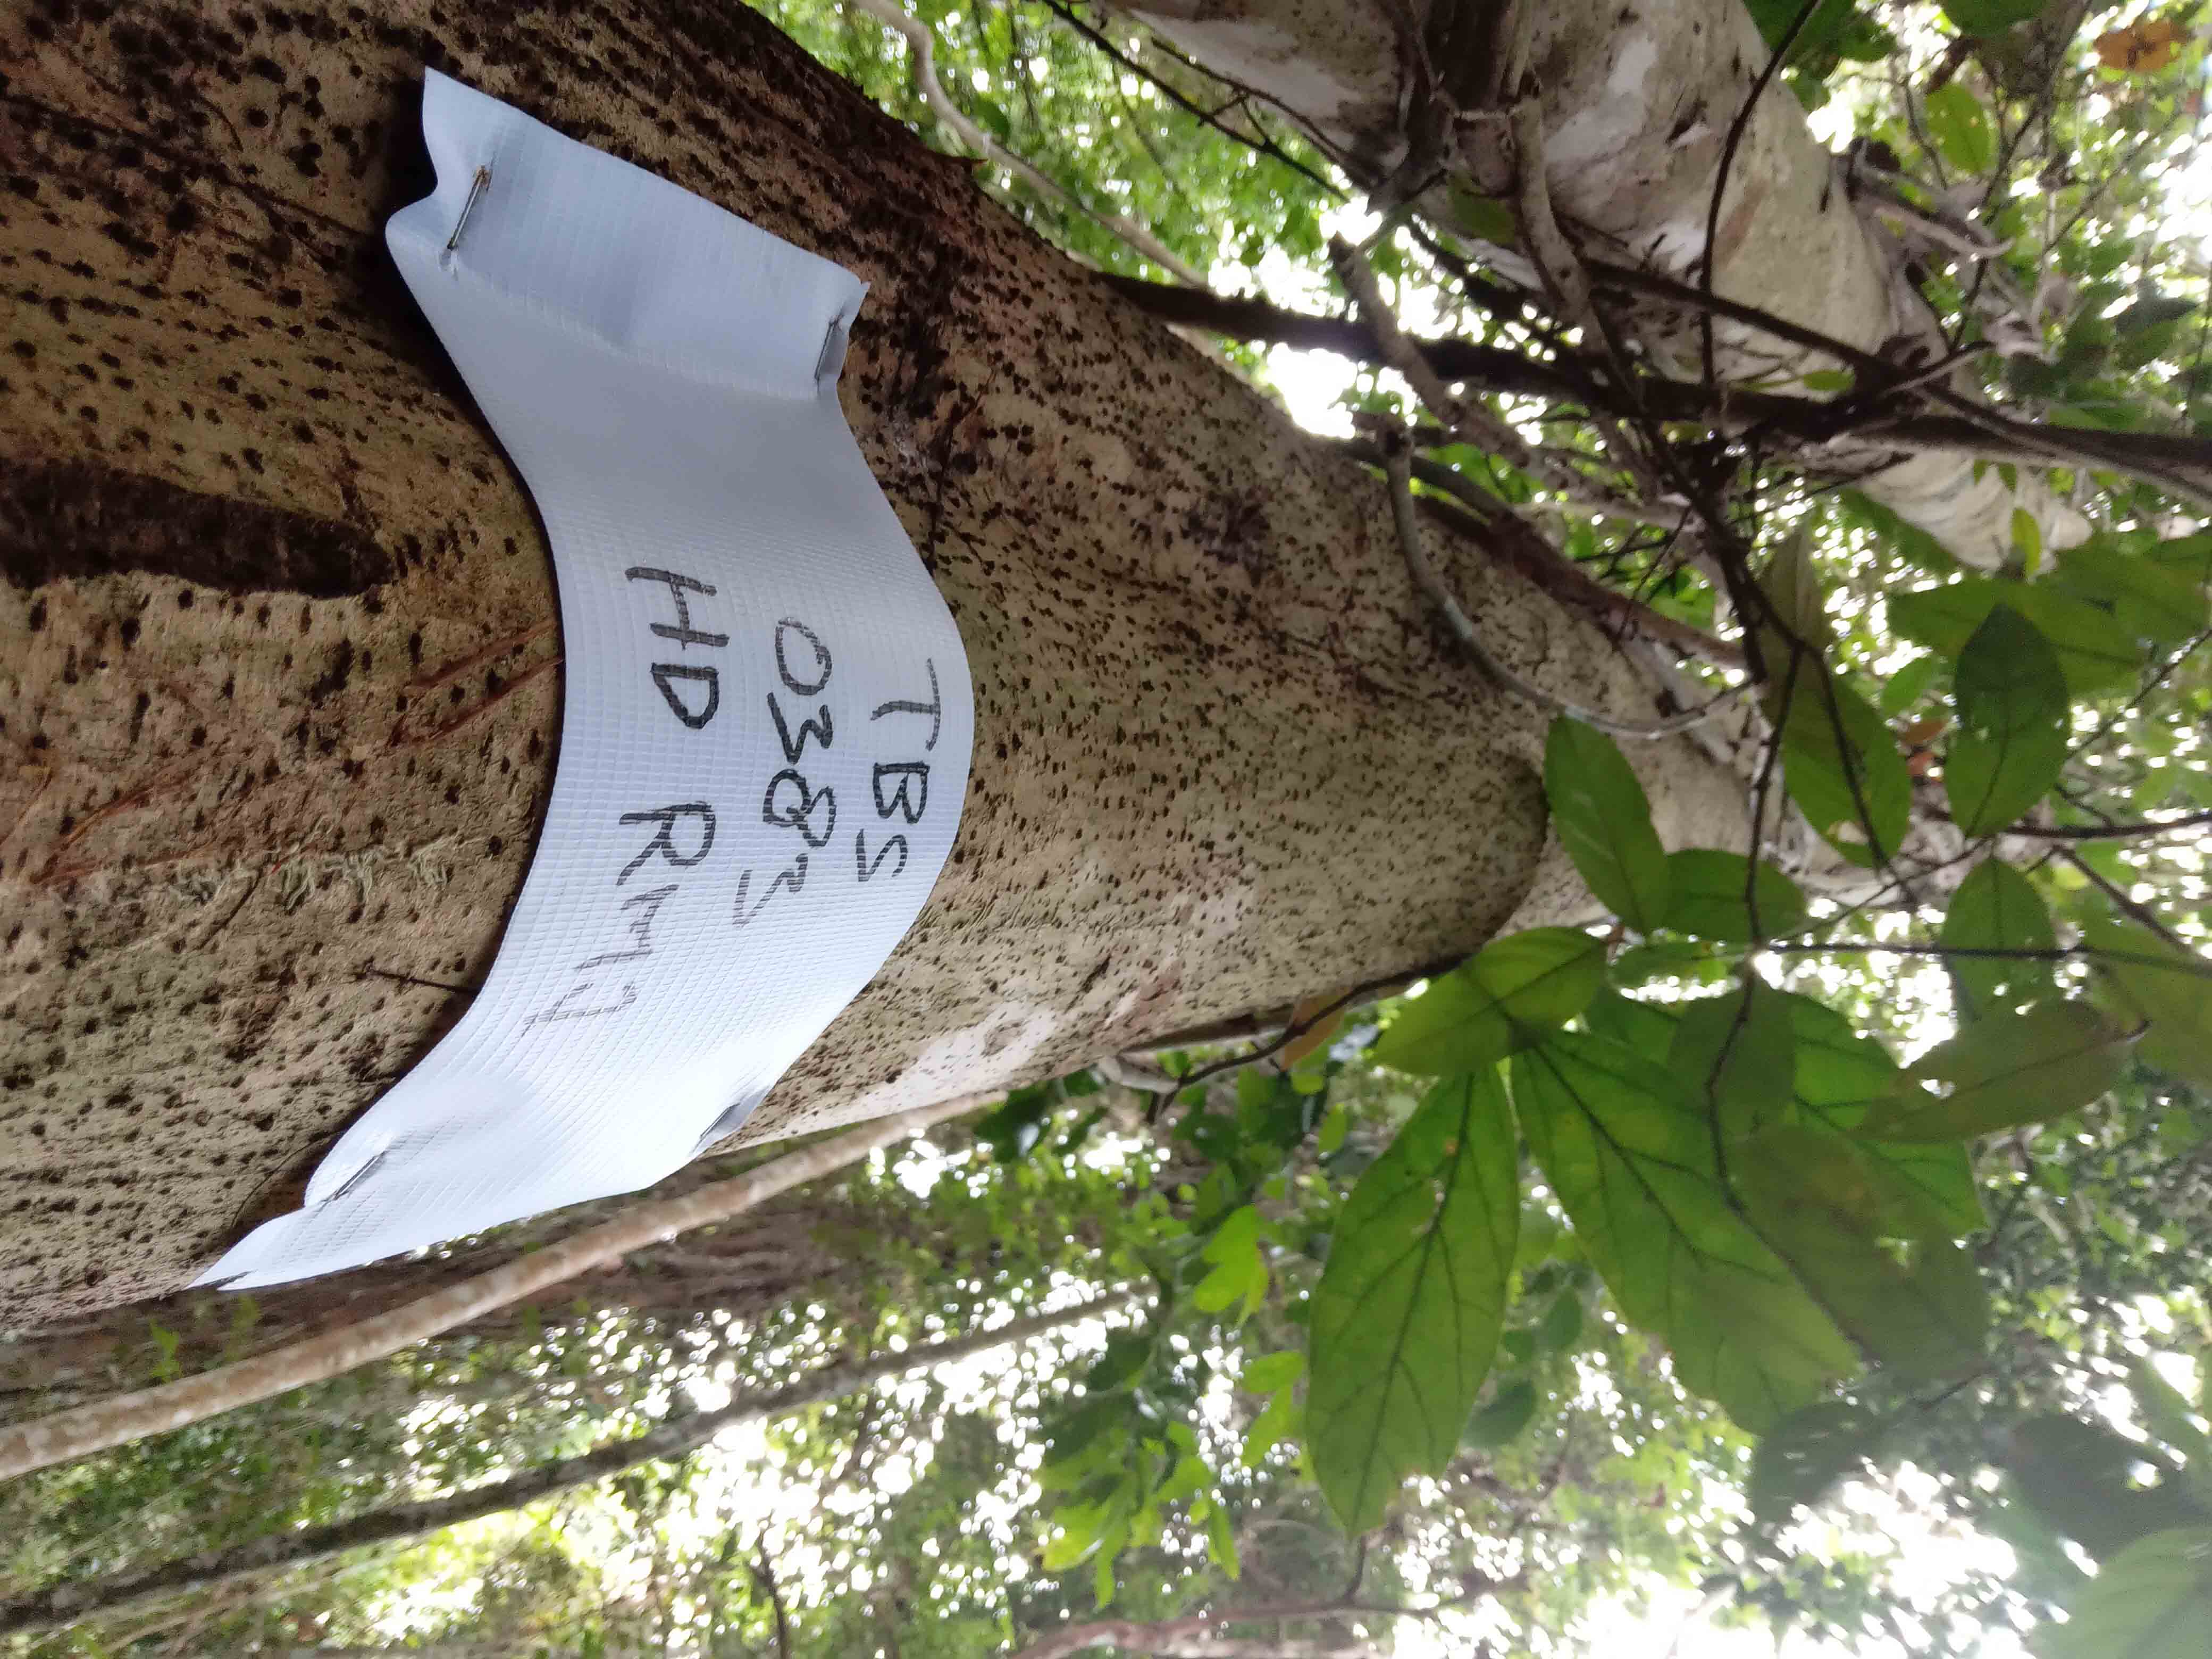 TBS
0383
HD RMJ